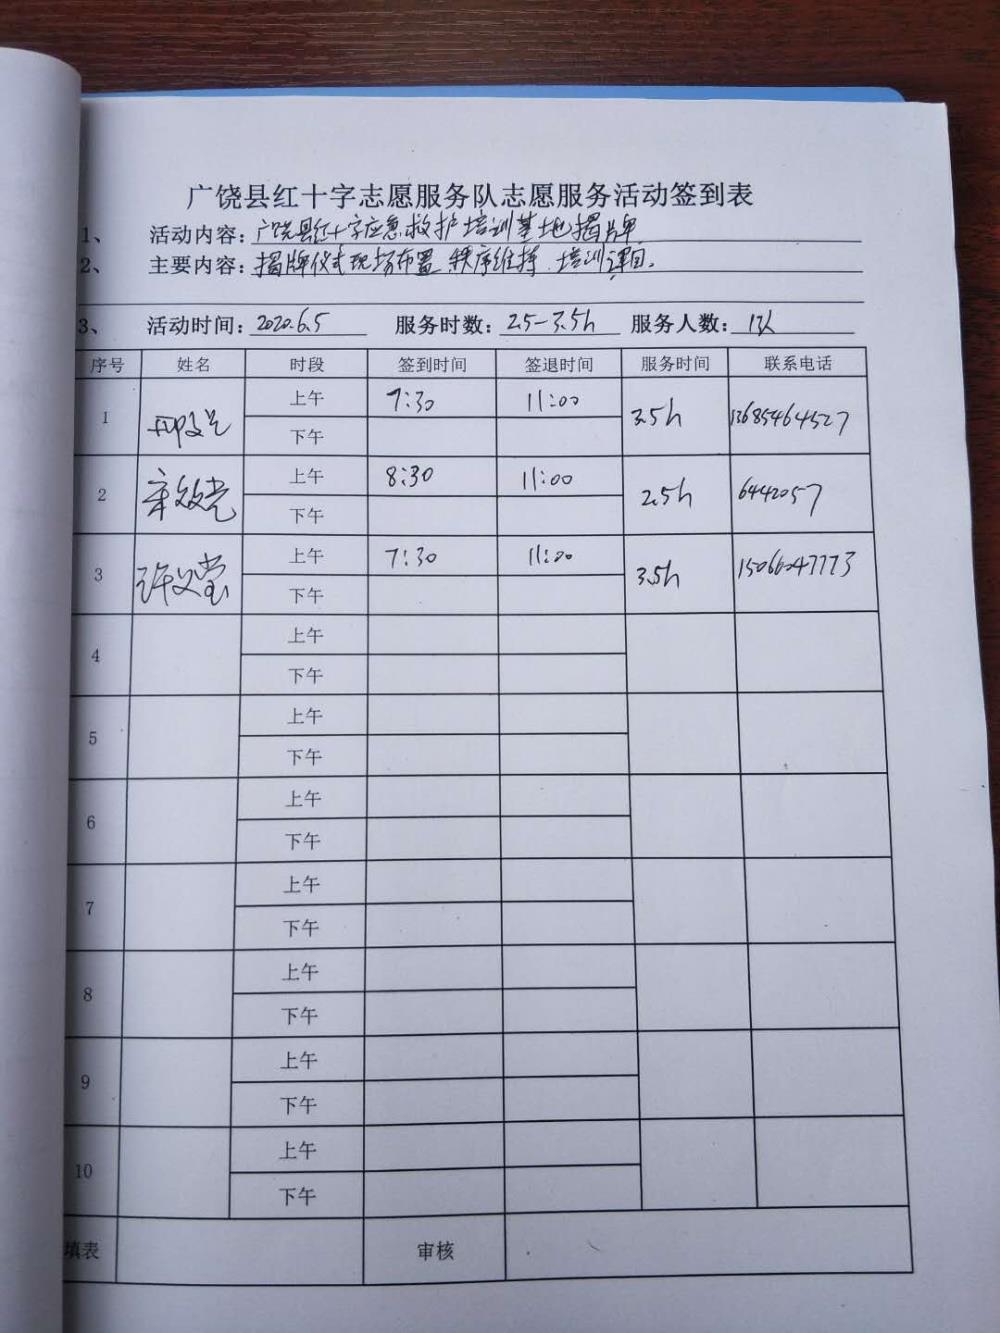 广饶县红十字志愿服务队志愿服务活动签到表
1、 活动内容：广饶县红十字应急救护培训基地揭牌
2、 主要内容：揭牌仪式现场布置、秩序维持、培训课目。
3、 活动时间：2020.6.5 服务时数：2.5-3.5h 服务人数：
序号 姓名 时段 签到时间 签退时间 服务时间 联系电话
1 上午 7:30 11:00 3.5h 13685464527
下午
2 上午 8:30 11:00 2.5h 6442057
下午
3 许文莹 上午 7:30 11:00 3.5h 15066047773
下午
4 上午
下午
5 上午
下午
6 上午
下午
7 上午
下午
8 上午
下午
9 上午
下午
10 上午
下午
填表 审核